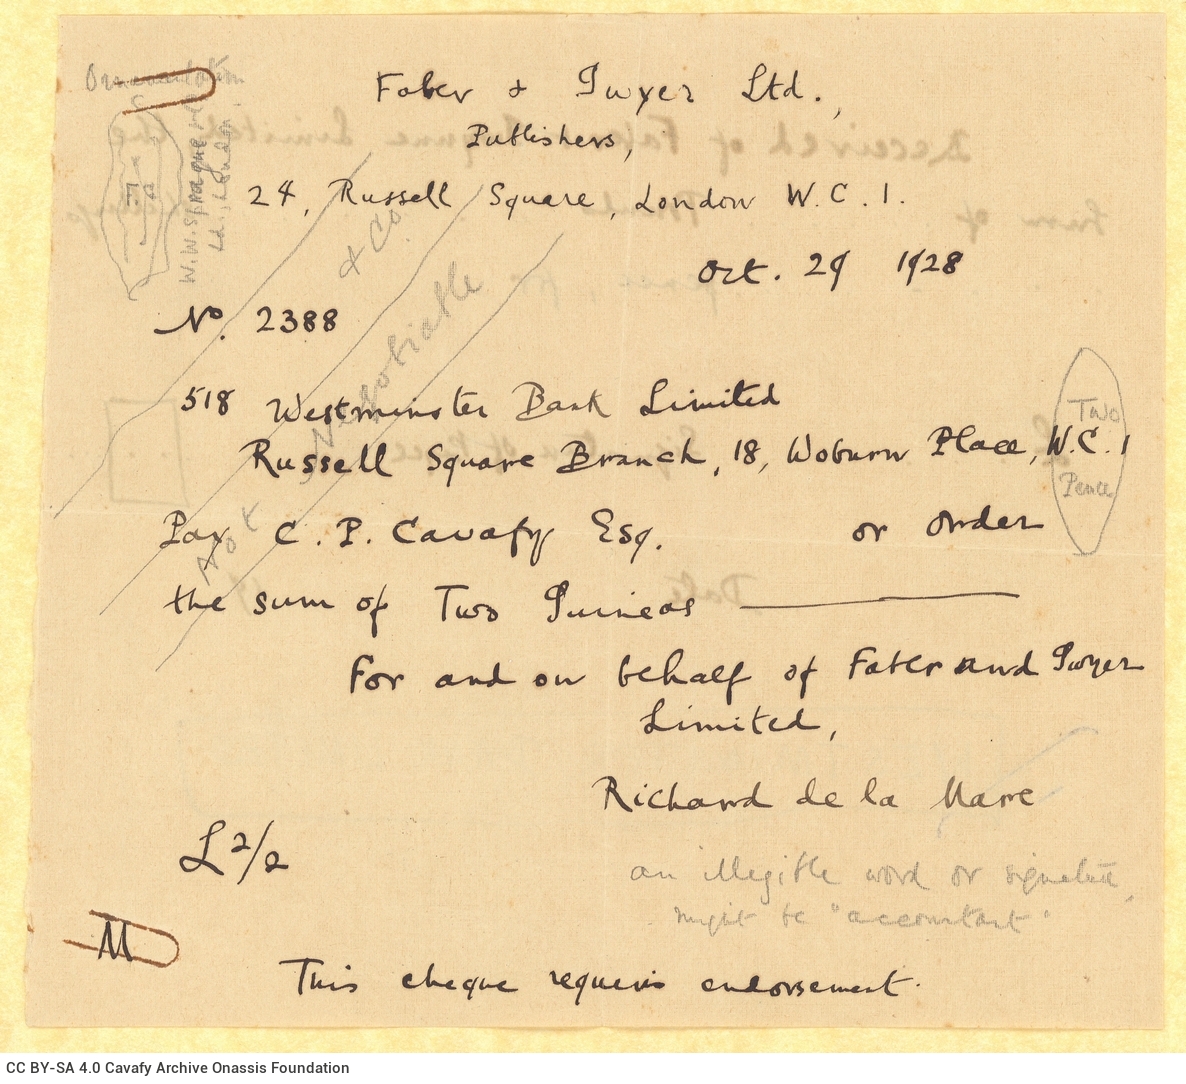 Ornamentation
W.W. Sprague
Ld., London.
Faber & Gwyer Ltd.,
Publishers,
24, Russell Square, London W.C.1.
& Co.
Oct. 29 1928
No. 2388
Not Negotiable
518 Westminster Bank Limited
Russell Square Branch, 18, Woburn Place, W.C.1
Two
Pence
Pay C. P. Cavafy Esq. or order
the sum of Two Guineas
For and on behalf of Faber and Gwyer
Limited,
Richard de la Mare
£2/2
an illegible word or signature,
might be "accountant"
M
This cheque requires endorsement.
CC BY-SA 4.0 Cavafy Archive Onassis Foundation